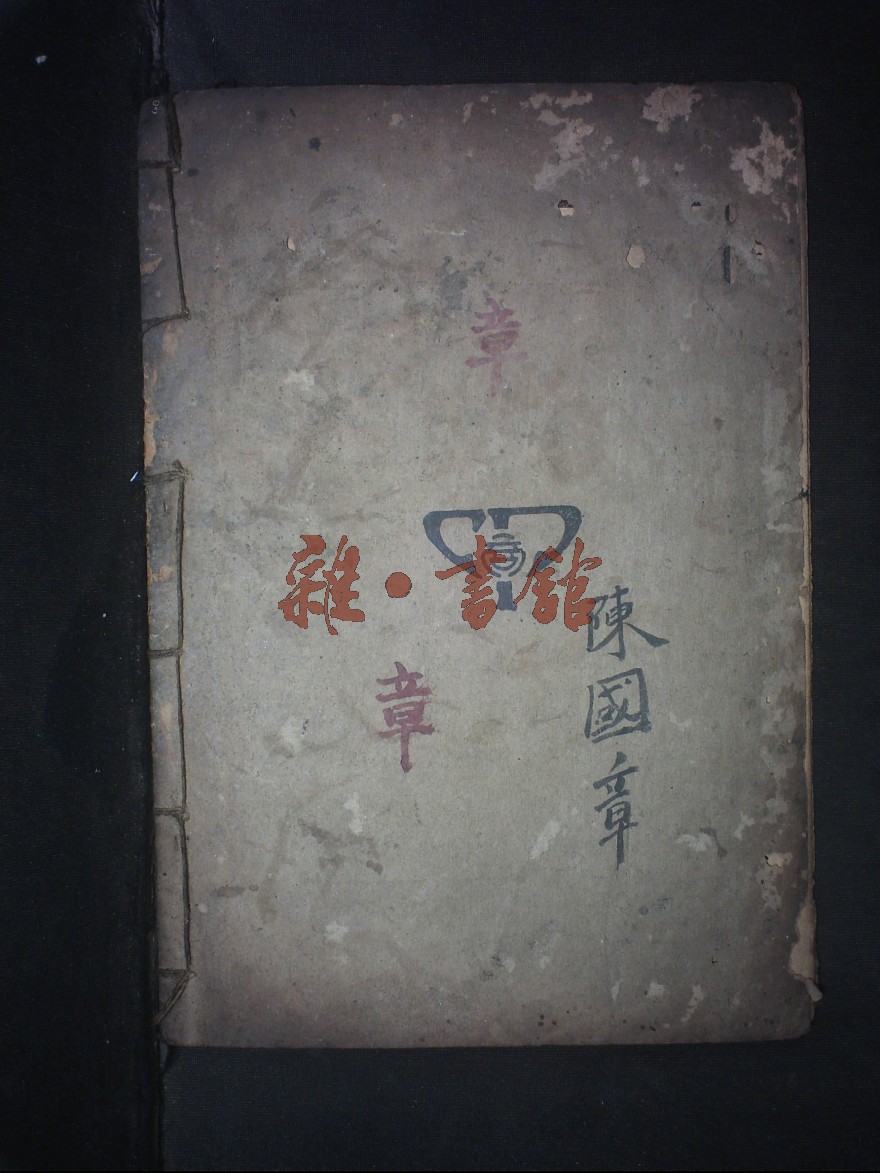 章
雜·書館
陳國章
章